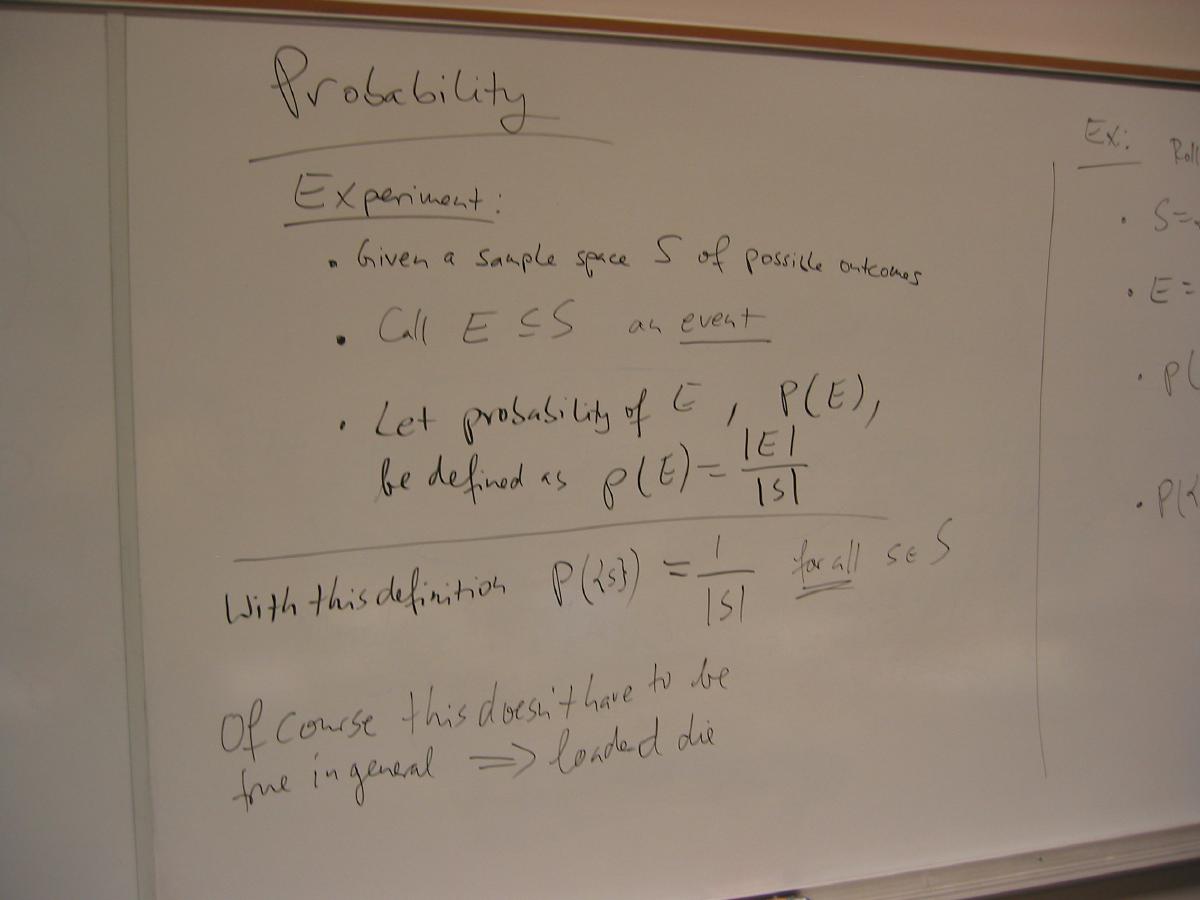 Probability
Experiment:
• Given a sample space S of possible outcomes
• Call E ⊆ S an event
• Let probability of E, P(E),
be defined as p(E) = |E| / |S|
With this definition P({s}) = 1 / |S| for all s ∈ S
Of course this doesn't have to be
true in general ⇒ loaded die
Ex: Roll
• S =
• E =
• P(
• P({